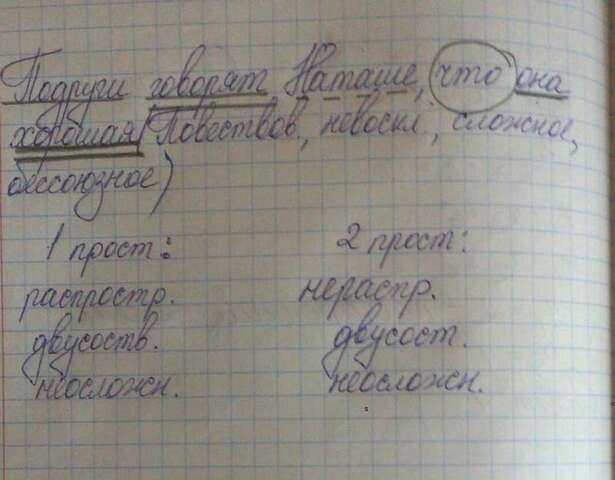 Подруги говорят Наташе, что она
хорошая(Повествов, невоскл, сложное,
бессоюзное)
1 прост:
2 прост:
распростр.
нераспр.
двусоств.
двусост.
неосложн.
неосложн.